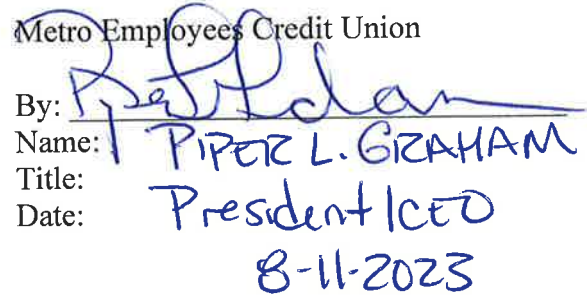 Metro Employees Credit Union
By:
Name: PIPER L. GRAHAM
Title: President/CEO
Date: 8-11-2023